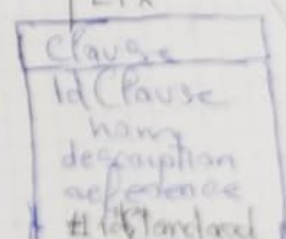 Clause
idClause
nom
description
reference
#idStandard